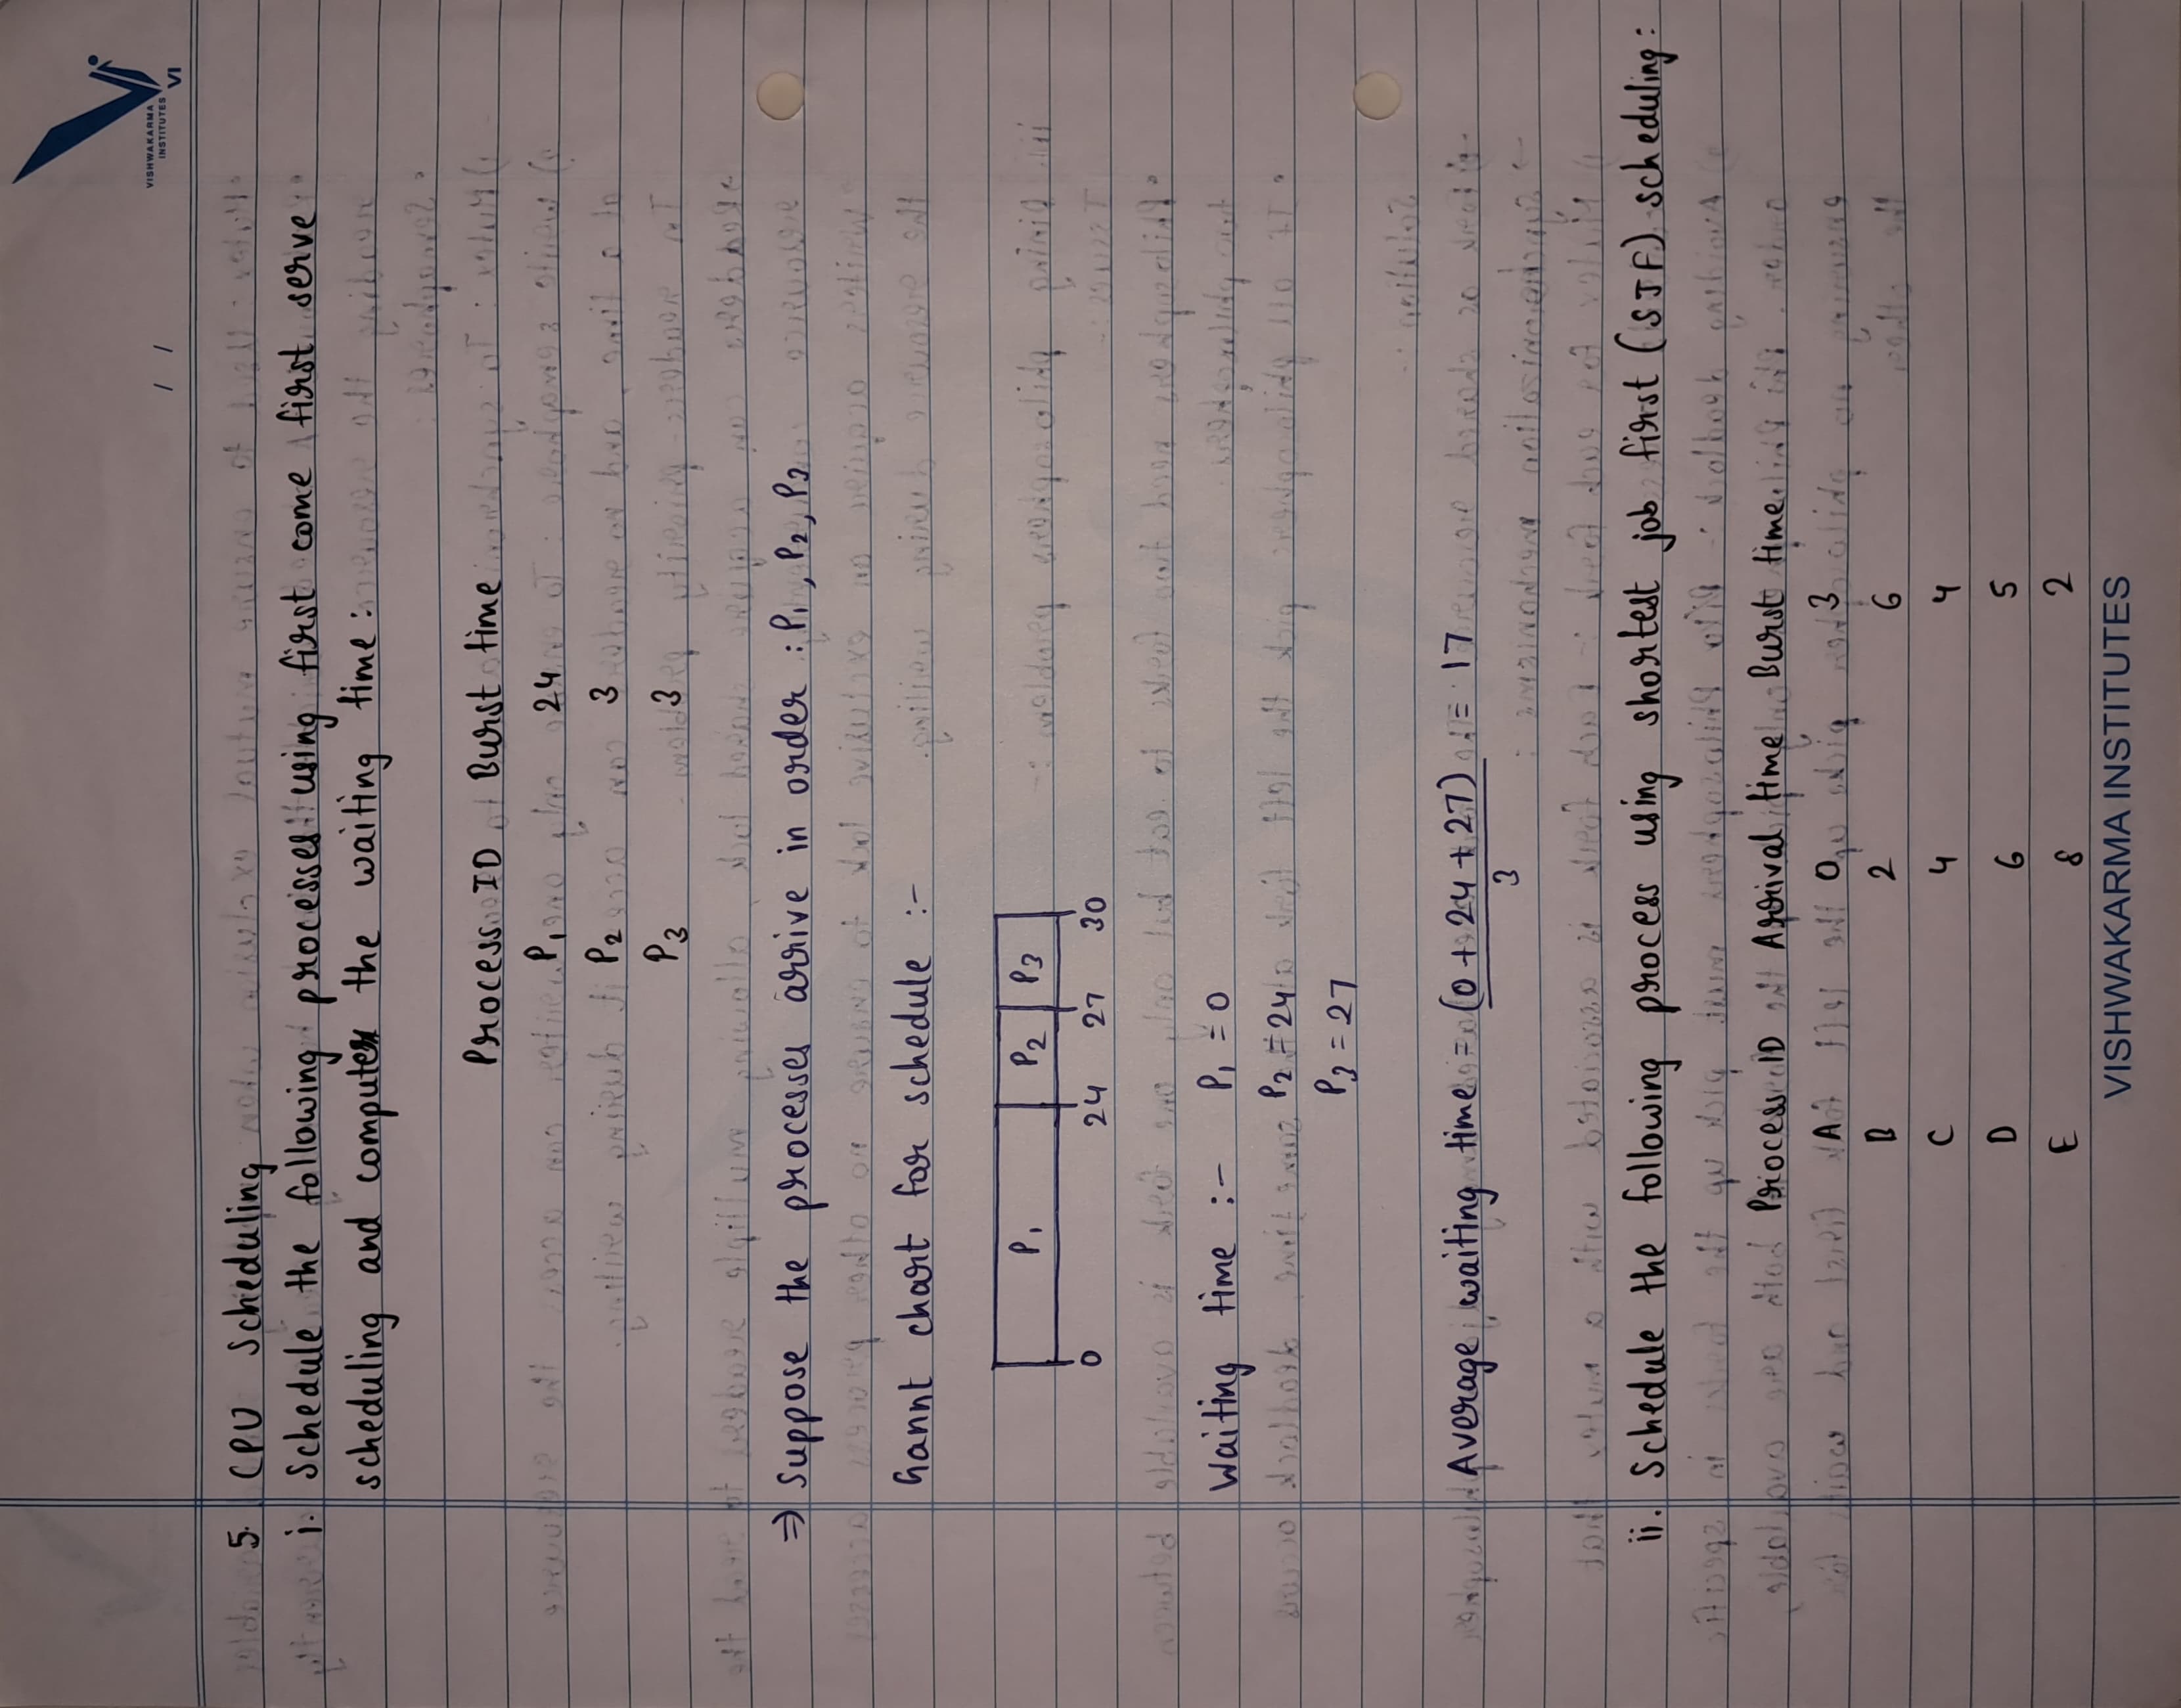 VISHWAKARMA
INSTITUTES
VI
/ /
5. CPU Scheduling
i. Schedule the following processes using first come first serve
scheduling and compute the waiting time:
Process ID Burst time
P1 24
P2 3
P3 3
⇒ Suppose the processes arrive in order : P1, P2, P3
Gannt chart for schedule :-
P1 P2 P3
0 24 27 30
Waiting time :- P1 = 0
P2 = 24
P3 = 27
Average waiting time = (0 + 24 + 27) = 17
3
ii. Schedule the following process using shortest job first (SJF) scheduling:
Process ID Arrival time Burst time
A 0 3
B 2 6
C 4 4
D 6 5
E 8 2
VISHWAKARMA INSTITUTES